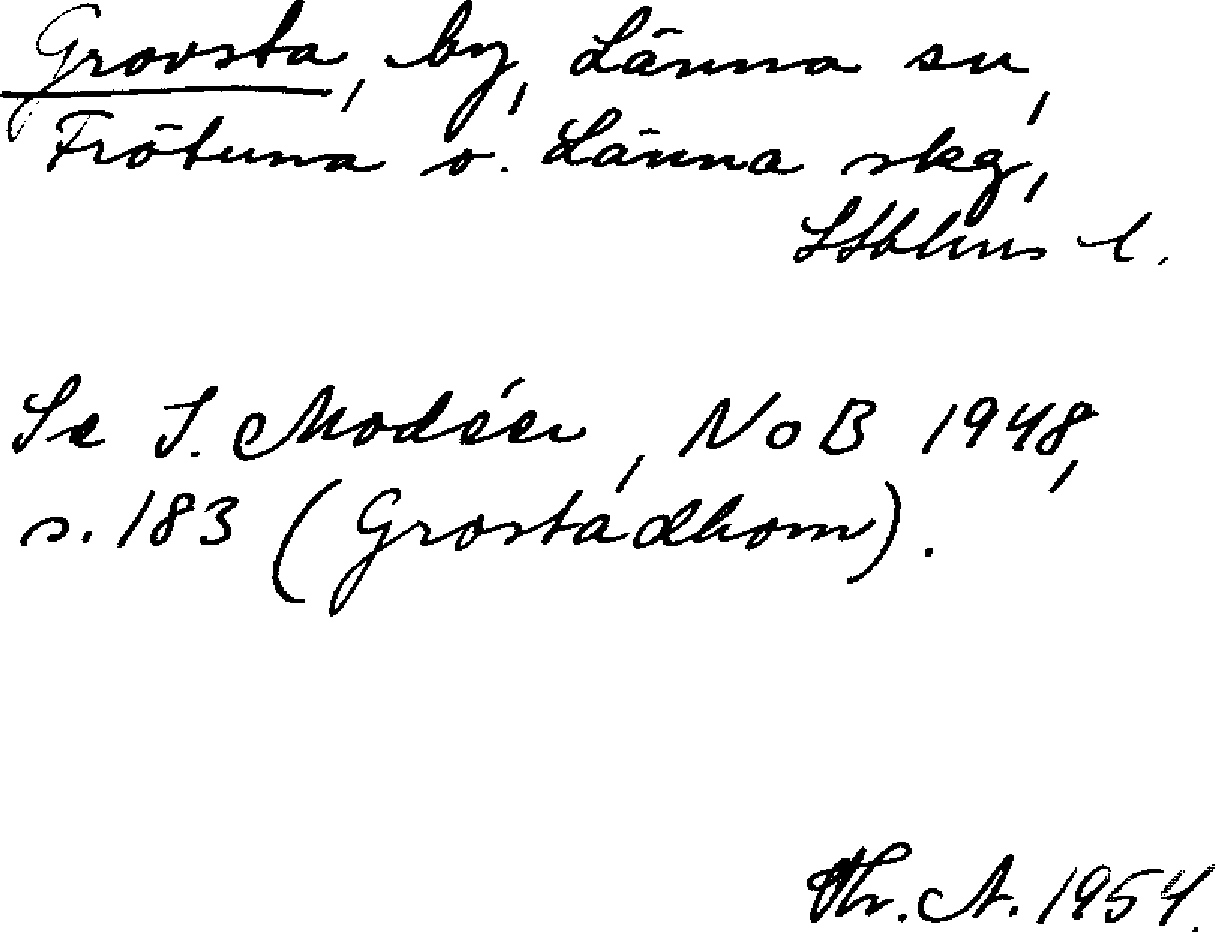 Grovsta, by, Länna sn,
Frötuna o. Länna skg,
Sthlms l.
Se I. Modéer, NoB 1948,
s. 183 (Grostadhom).
Thr. A. 1954.